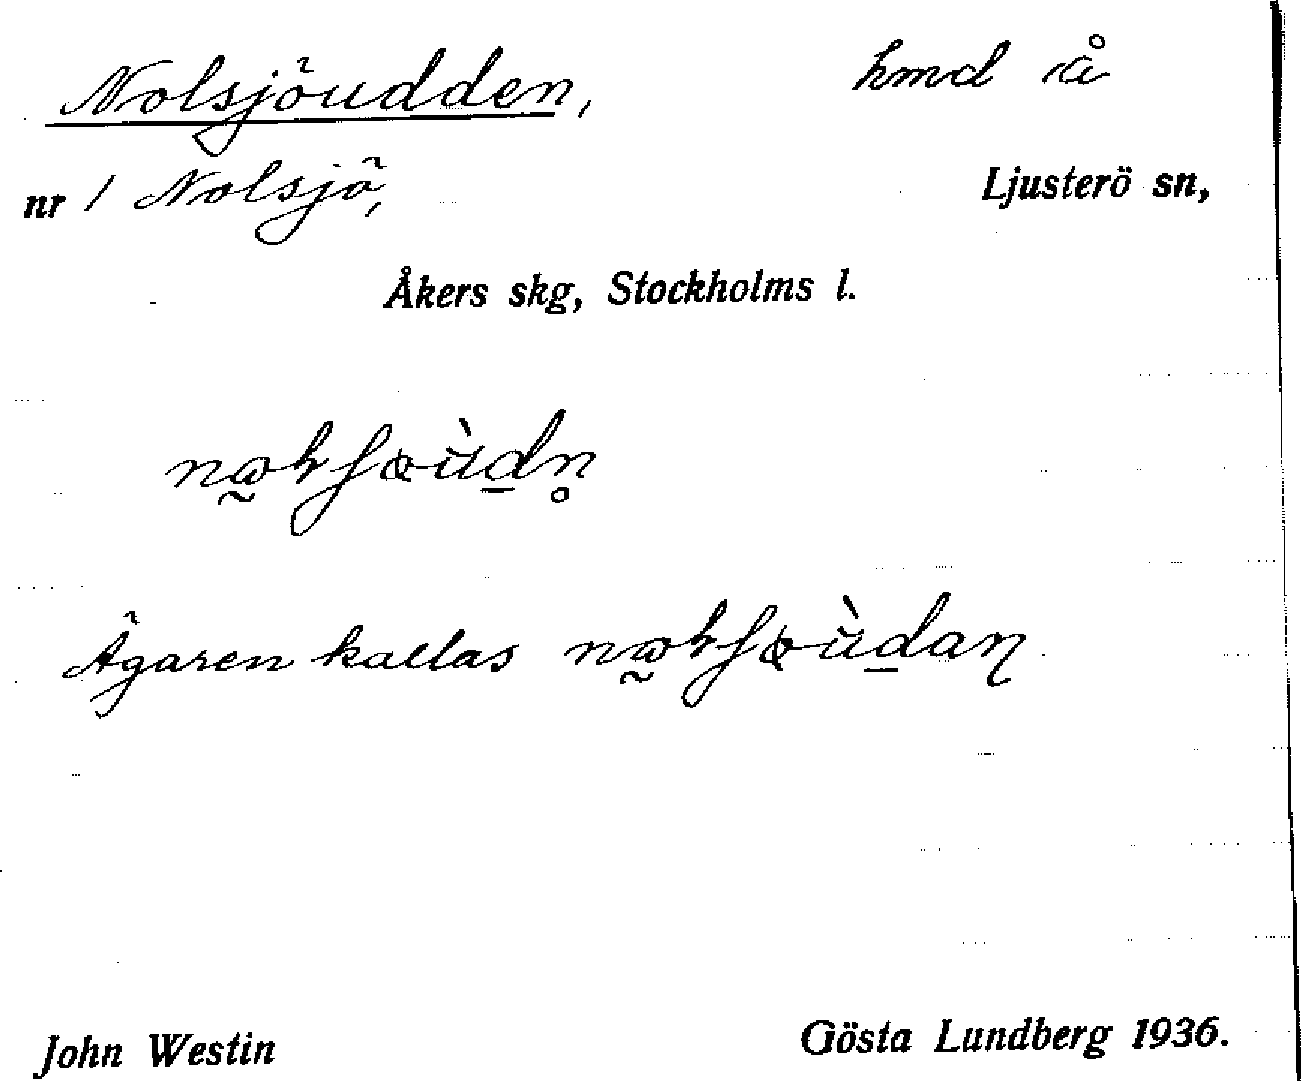 Nolsjöudden, hmd å
nr 1 Nolsjö, Ljusterö sn,
Åkers skg, Stockholms l.
Ägaren kallas
John Westin Gösta Lundberg 1936.